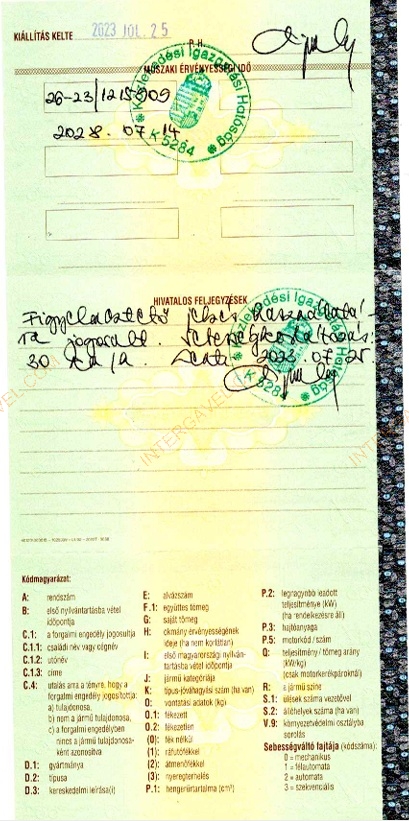 KIÁLLÍTÁS KELTE 2023 JÚL. 25
P.H.
MŰSZAKI ÉRVÉNYESSÉGI IDŐ
Közlekedési Igazgatási Hatóság
K 5284
26-23/1215909
2028. 07 14
HIVATALOS FELJEGYZÉSEK
Figyelmeztető jelzés használatá-
ra jogosult.
30 2023. 07. 25
Közlekedési Igazgatási Hatóság
K 5284
INTERGAVEL.COM
INTERGAVEL
Kódmagyarázat:
A: rendszám
B: első nyilvántartásba vétel
időpontja
C.1: a forgalmi engedély jogosultja
C.1.1: családi név vagy cégnév
C.1.2: utónév
C.1.3: címe
C.4: utalás arra a tényre, hogy a
forgalmi engedély jogosultja:
a) tulajdonosa,
b) nem a jármű tulajdonosa,
c) a forgalmi engedélyben
nincs a jármű tulajdonosa-
ként azonosítva
D.1: gyártmánya
D.2: típusa
D.3: kereskedelmi leírása(i)
E: alvázszám
F.1: együttes tömeg
G: saját tömeg
H: okmány érvényességének
ideje (ha nem korlátlan)
I: első magyarországi nyilván-
tartásba vétel időpontja
J: jármű kategóriája
K: típus-jóváhagyási szám (ha van)
O: vontatási adatok (kg)
O.1: fékezett
O.2: fékezetlen
(0): fék nélkül
(1): ráfutófékkel
(2): átmenőfékkel
(3): nyeregterhelés
P.1: hengerűrtartalma (cm³)
P.2: legnagyobb leadott
teljesítménye (kW)
(ha rendelkezésre áll)
P.3: hajtóanyaga
P.5: motorkód / szám
Q: teljesítmény / tömeg arány
(kW/kg)
(csak motorkerékpároknál)
R: a jármű színe
S.1: ülések száma vezetővel
S.2: állóhelyek száma (ha van)
V.9: környezetvédelmi osztályba
sorolás
Sebességváltó fajtája (kódszáma):
0 = mechanikus
1 = félautomata
2 = automata
3 = szekvenciális